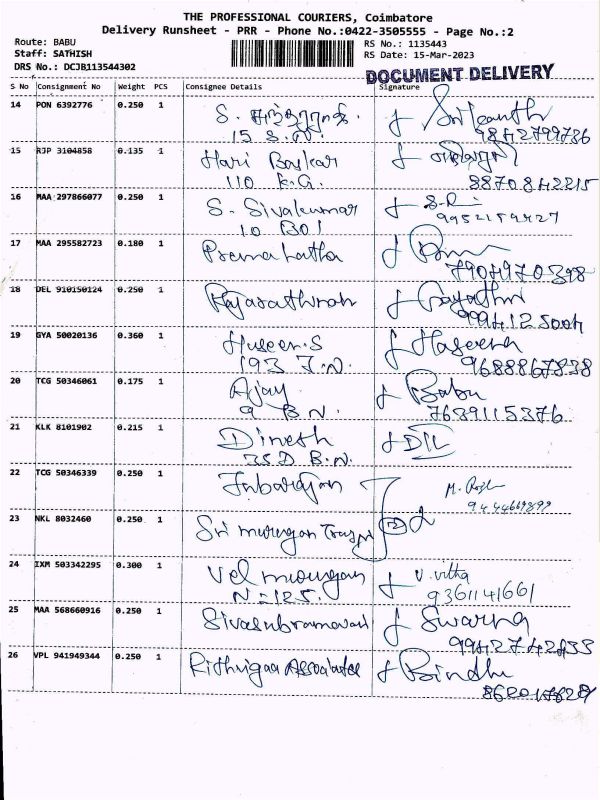 THE PROFESSIONAL COURIERS, Coimbatore
Delivery Runsheet - PRR - Phone No.:0422-3505555 - Page No.:2
Route: BABU
Staff: SATHISH
DRS No.: DCJB113544302
RS No.: 1135443
RS Date: 15-Mar-2023
DOCUMENT DELIVERY
S No Consignment No Weight PCS Consignee Details Signature
14 PON 6392776 0.250 1 S. Srikanth
15 S.N. 9842799786
15 RJP 3104858 0.135 1 Hari Baskar
110 K.G. 8870842215
16 MAA 297866077 0.250 1 S. Sivakumar S.R
10 BOI
17 MAA 295582723 0.180 1 Premalatha
18 DEL 910150124 0.250 1 Gayathri
19 GYA 50020136 0.360 1 Huseen.S Haseena
193 J.N. 9688867838
20 TCG 50346061 0.175 1 Ajay Babu
9 B.N. 7639115376
21 KLK 8101902 0.215 1 Dinesh
35D B.N.
22 TCG 50346339 0.250 1 Jabarajan M.
23 NKL 8032460 0.250 1 Sri murugan
24 IXM 503342295 0.300 1 Vel murugan
N-125. 9361141661
25 MAA 568660916 0.250 1 Swarna
9942742833
26 VPL 941949344 0.250 1 Rithvigaa Associates Bindhu